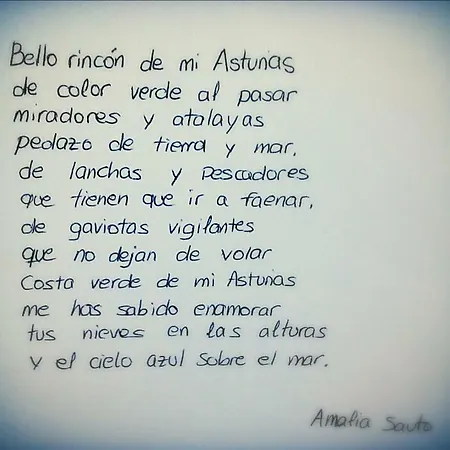 Bello rincón de mi Asturias
de color verde al pasar
miradores y atalayas
pedazo de tierra y mar,
de lanchas y pescadores
que tienen que ir a faenar,
de gaviotas vigilantes
que no dejan de volar
Costa verde de mi Asturias
me has sabido enamorar
tus nieves en las alturas
y el cielo azul sobre el mar.
Amalia Sauto